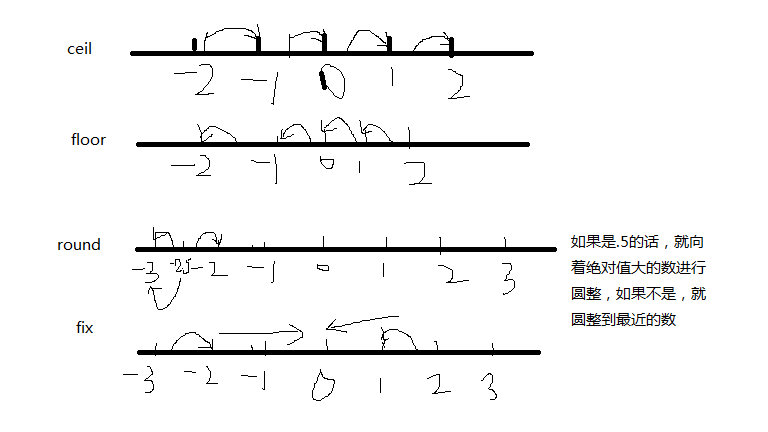 ceil
-2 -1 0 1 2
floor
-2 -1 0 1 2
round
-3 -2.5 -2 -1 0 1 2 3
如果是.5的话，就向
着绝对值大的数进行
圆整，如果不是，就
圆整到最近的数
fix
-3 -2 -1 0 1 2 3